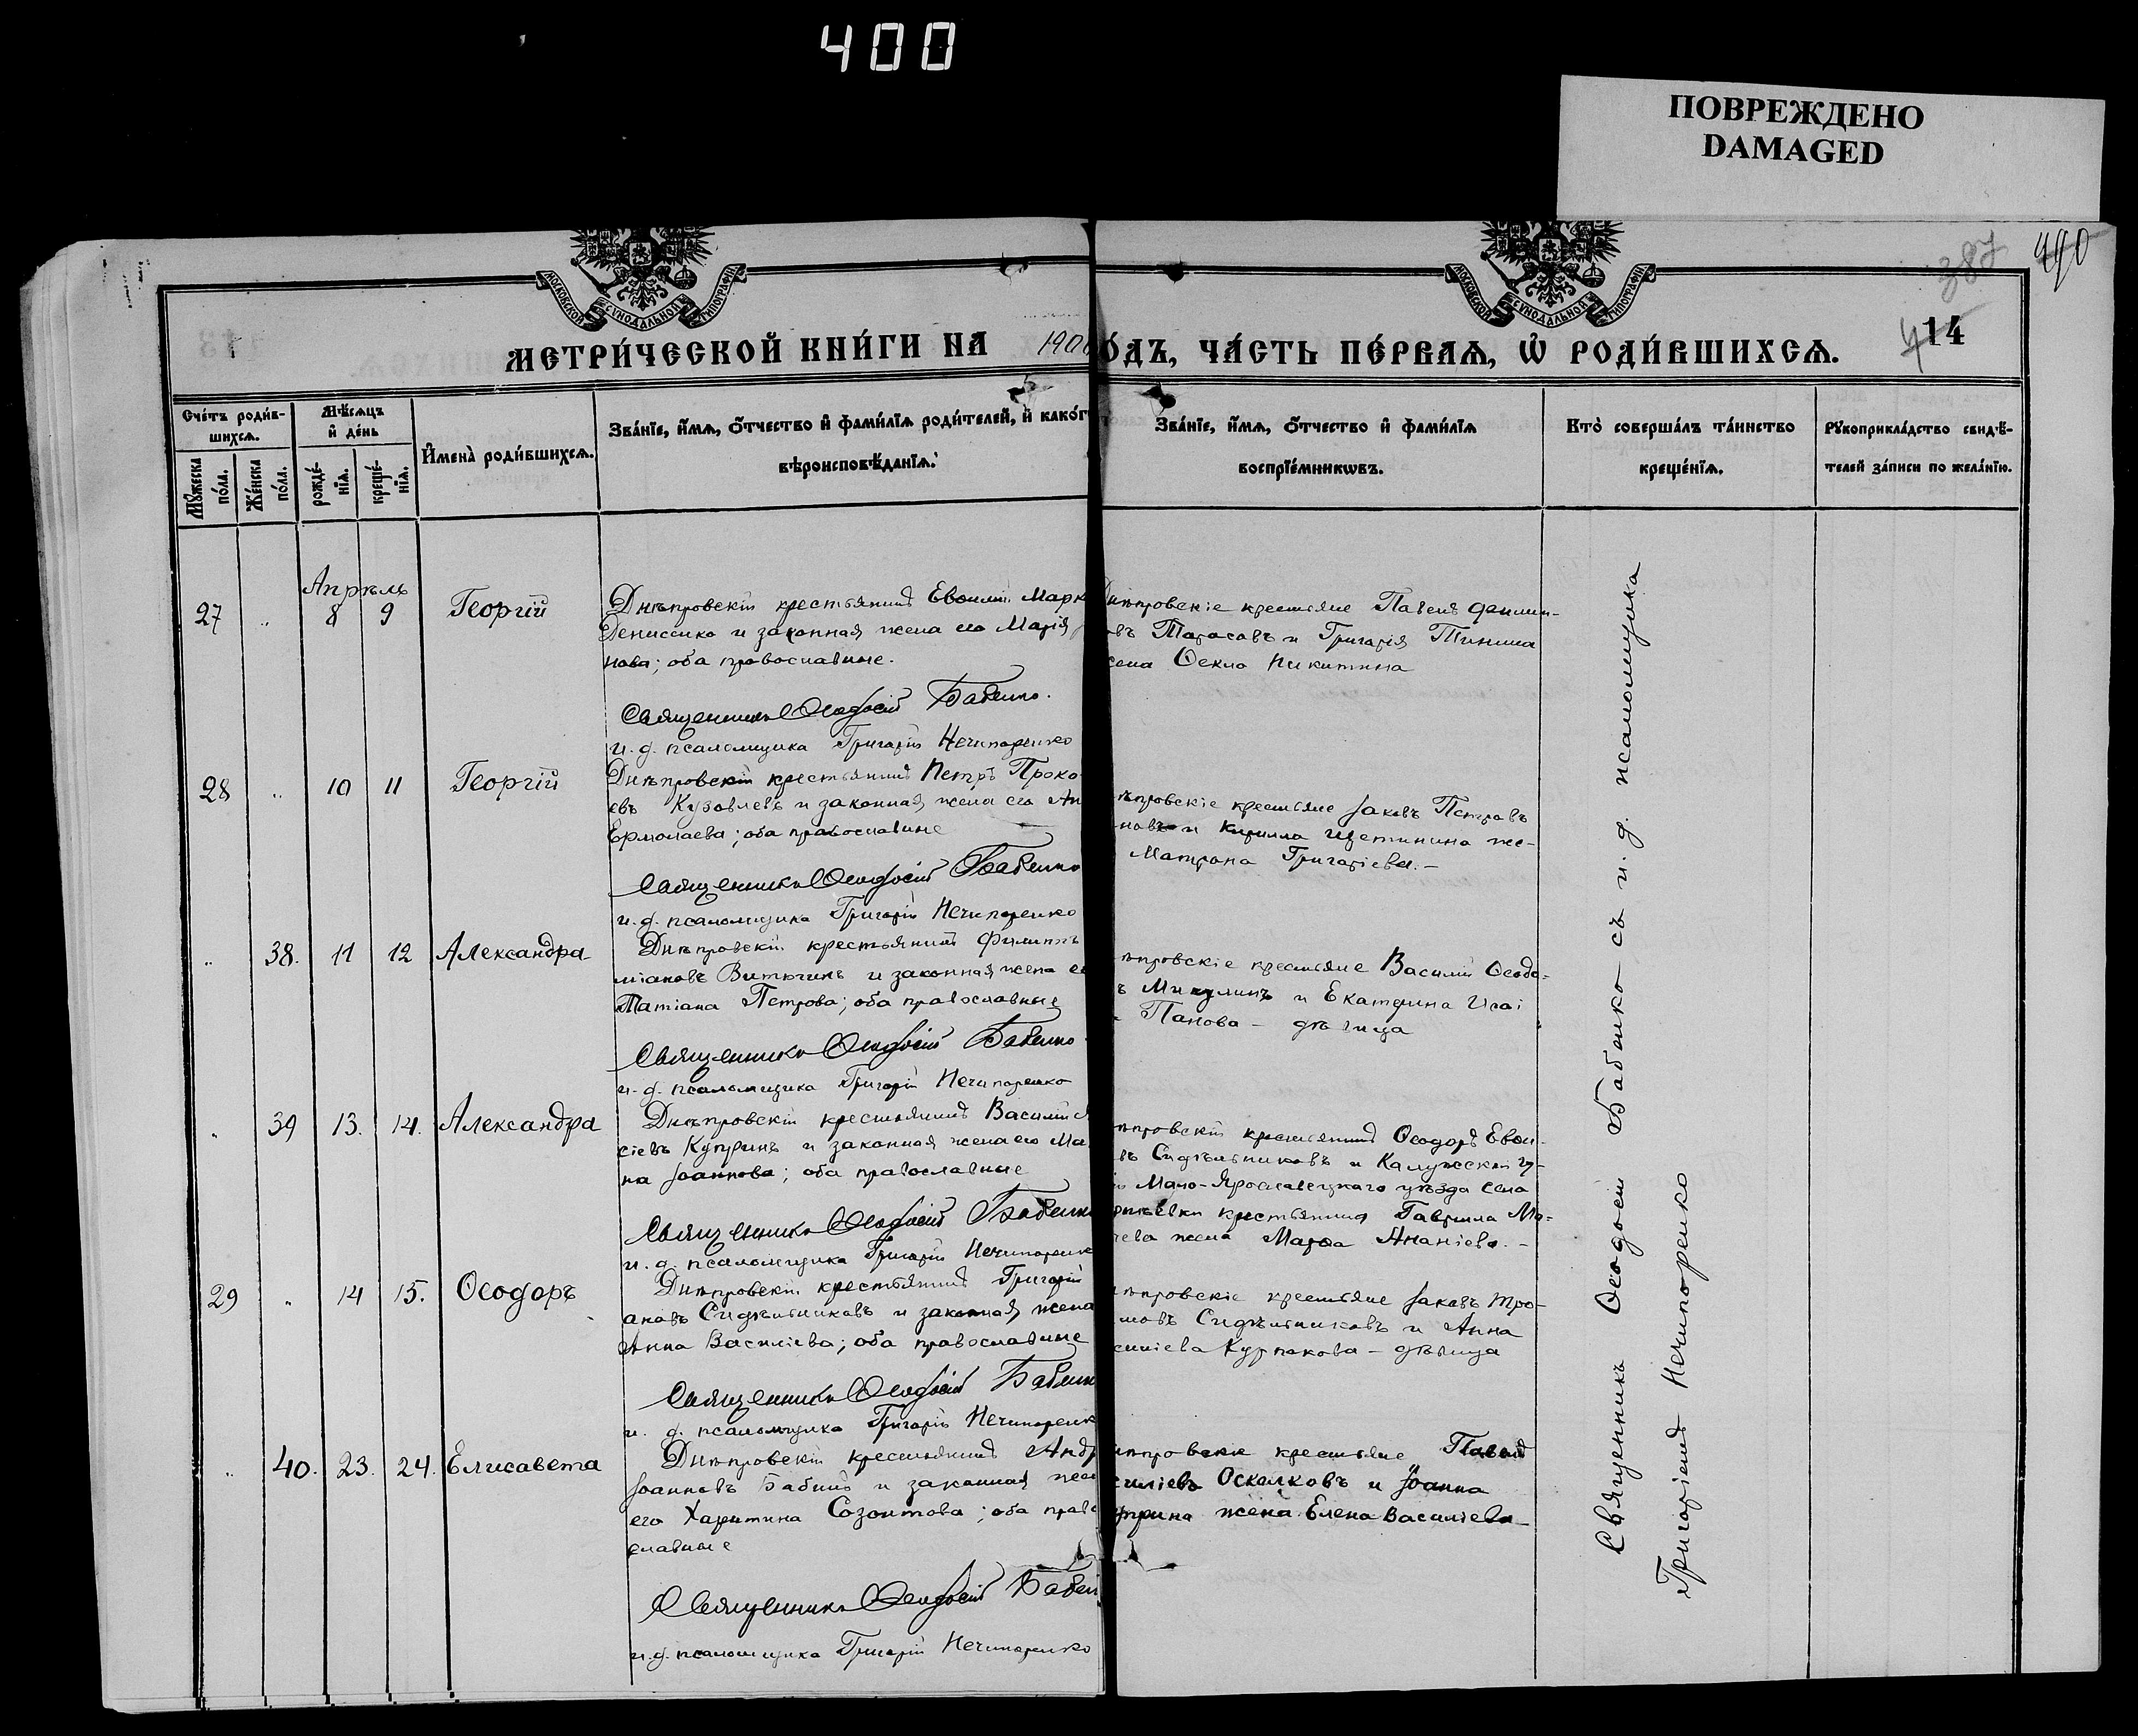 400
ПОВРЕЖДЕНО
DAMAGED
387
490
МОСКОВСКОЙ СѴНОДАЛЬНОЙ ТИПОГРАФІИ
МОСКОВСКОЙ СѴНОДАЛЬНОЙ ТИПОГРАФІИ
МЕТРИ́ЧЕСКОЙ КНИ́ГИ НА 190
О́ДЪ, ЧА́СТЬ ПЕ́РВАѦ, Ѡ҆ РОДИ́ВШИХСѦ.
14
Сче́тъ роди́в-
шихсѧ.
Мѣ́сѧцъ
и҆ де́нь
Мꙋ́жеска
по́ла.
Же́нска
по́ла.
рожде́-
нїѧ.
креще́-
нїѧ.
И҆мена̀ роди́вшихсѧ.
Зва́нїе, и҆́мѧ, ѻ҆́тчество и҆ фами́лїѧ роди́телей, и҆ како́г
вѣроисповѣ́данїѧ.
Зва́нїе, и҆́мѧ, ѻ҆́тчество и҆ фами́лїѧ
воспрїе́мникѡвъ.
Кто̀ соверша́лъ та́инство
креще́нїѧ.
Рꙋкоприкла́дство свидѣ́-
телей за́писи по жела́нїю.
Апрѣль
27 " 8 9 Георгій
Днѣпровскій крестьянинъ Евѳимій Марк
Денисенко и законная жена его Марія
нова; оба православные.
Священникъ Ѳеодосій Бабенко.
и. д. псаломщика Григорій Нечипоренко
нѣпровскіе крестьяне Павелъ Филип-
овъ Тарасовъ и Григорія Тинина
жена Ѳекла Никитина
28 " 10 11 Георгій
Днѣпровскій крестьянинъ Петръ Проко
евъ Кузовлевъ и законная жена его Ан
Ермолаева; оба православные
Священникъ Ѳеодосій Бабенко
и. д. псаломщика Григорій Нечипоренко
ѣпровскіе крестьяне Іаковъ Петровъ
новъ и Кирилла Щетинина же-
Матрона Григоріева.-
" 38. 11 12 Александра
Днѣпровскій крестьянинъ Филиппъ
міановъ Витютинъ и законная жена ег
Татіана Петрова; оба православные
Священникъ Ѳеодосій Бабенко
и. д. псаломщика Григорій Нечипоренко
ѣпровскіе крестьяне Василій Ѳеодо-
ъ Микулинъ и Екатерина Исаі
Панова - дѣвица
" 39 13. 14. Александра
Днѣпровскій крестьянинъ Василій
сіевъ Купринъ и законная жена его Ма
на Іоаннова; оба православные
Священникъ Ѳеодосій Бабенко
и. д. псаломщика Григорій Нечипоренк
ѣпровскій крестьянинъ Ѳеодоръ Евѳи-
въ Сидѣльниковъ и Калужской гу-
Мало-Ярославецкаго уѣзда села
крестьянина Гавріила Ма-
ева жена Марѳа Ананіева.-
29 " 14 15. Ѳеодоръ
Днѣпровскій крестьянинъ Григорій
ановъ Сидѣльниковъ и законная жена
Анна Василіева; оба православные
Священникъ Ѳеодосій Бабенк
и. д. псаломщика Григорій Нечипоренк
ѣпровскіе крестьяне Іаковъ Тро-
мовъ Сидѣльниковъ и Анна
силіева Курпакова - дѣвица
" 40. 23. 24. Елисавета
Днѣпровскій крестьянинъ Андр
Іоанновъ Бабинъ и законная жен
его Харитина Созонтова; оба прав
славные
Священникъ Ѳеодосій Бабен
и. д. псаломщика Григорій Нечипоренко
ѣпровскіе крестьяне Павелъ
силіевъ Оскалковъ и Іоанна
уприна жена Елена Василіева-
Священникъ Ѳеодосій Бабенко съ и. д. псаломщика
Григоріемъ Нечипоренко